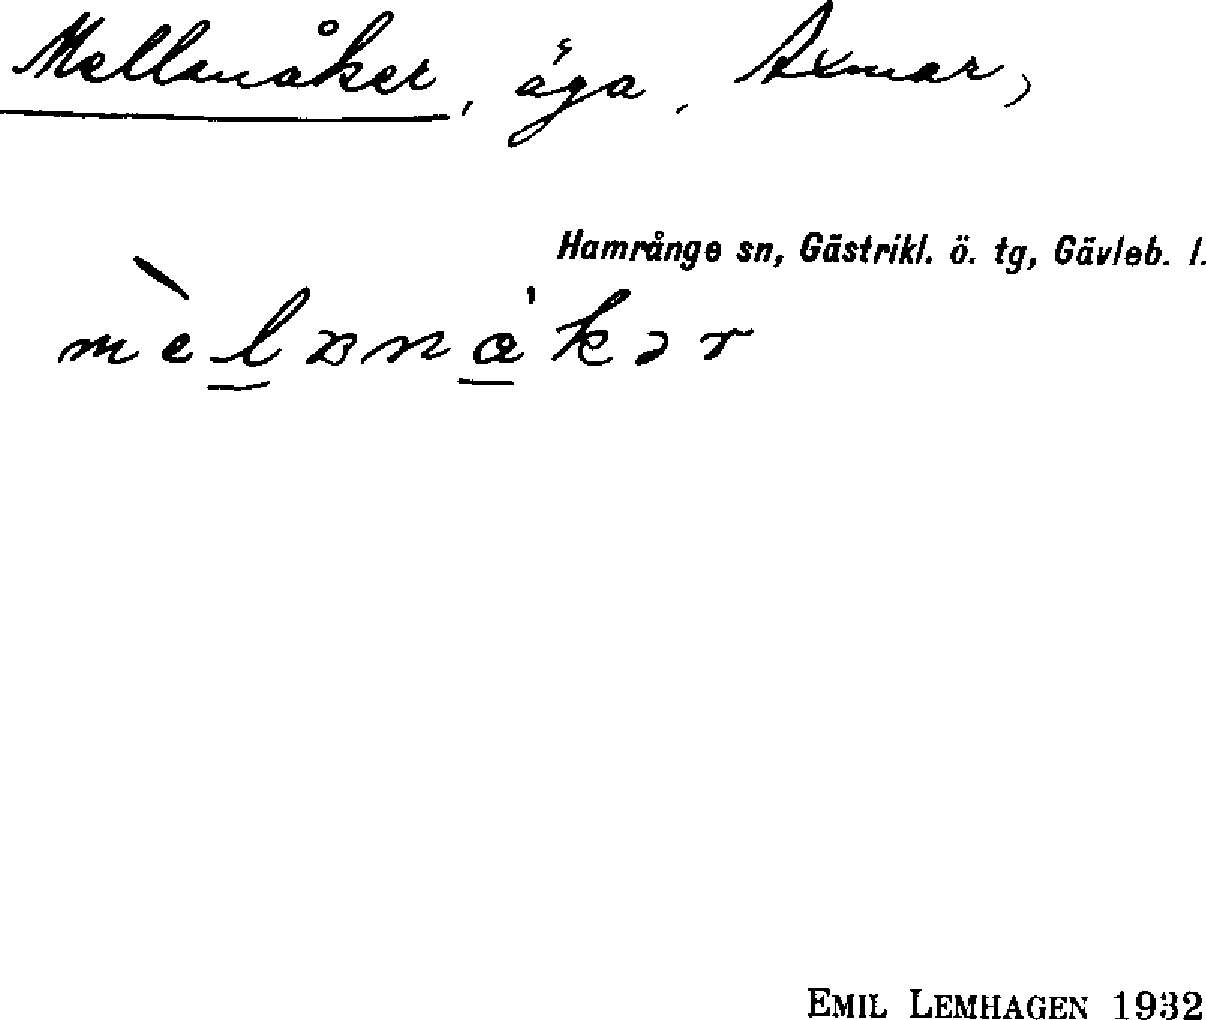 Mellanåker, äga, Axmar,
Hamrånge sn, Gästrikl. ö. tg, Gävleb. l.
EMIL LEMHAGEN 1932